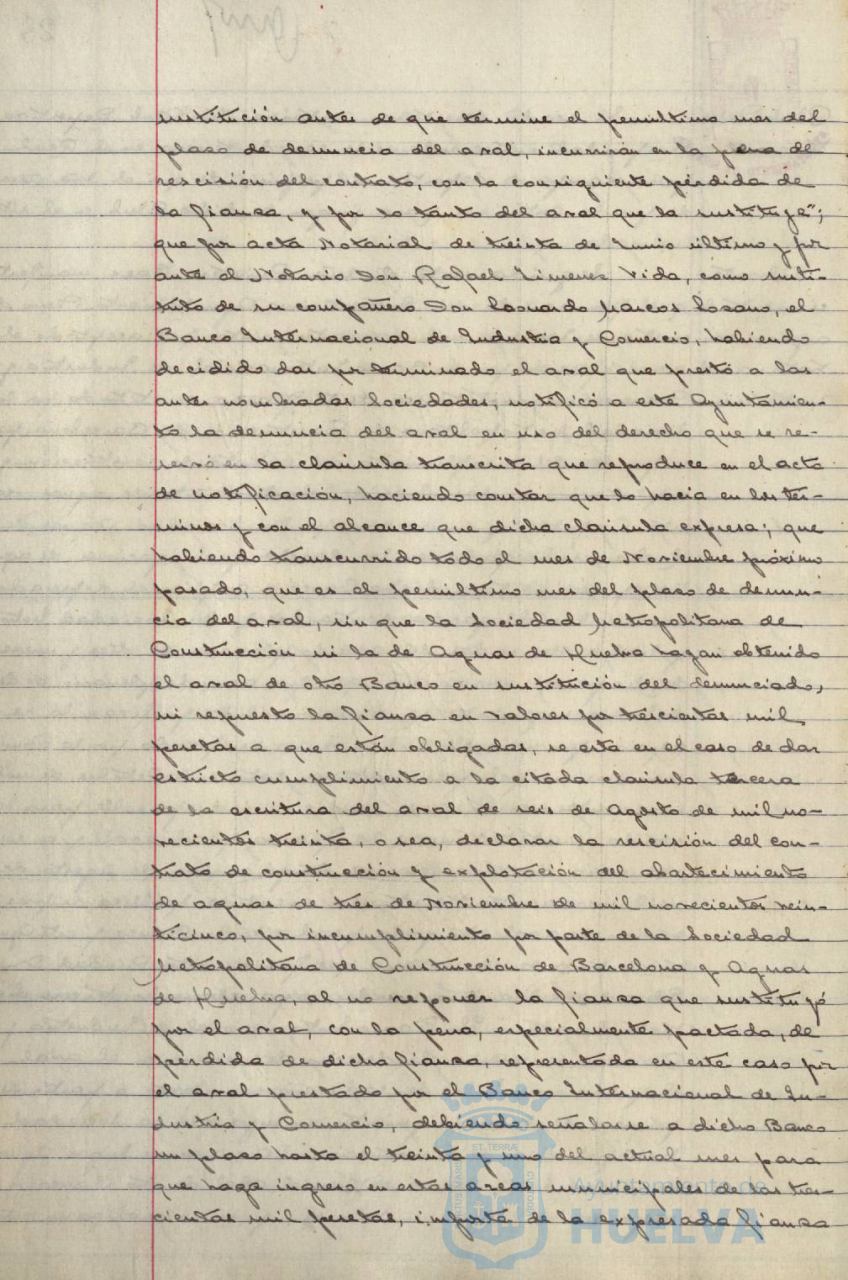 sustitución antes de que termine el penultimo mes del
plazo de denuncia del aval, incurrirán en la pena de
rescisión del contrato, con la consiguiente pérdida de
la fianza, y por lo tanto del aval que la sustituye";
que por acta Notarial de treinta de Junio último y por
ante el Notario Don Rafael Jimenez Vida, como susti-
tuto de su compañero Don Leonardo Marcos Lozano, el
Banco Internacional de Industria y Comercio, habiendo
decidido dar por terminado el aval que prestó a las
antes nombradas Sociedades, notificó a este Ayuntamien-
to la denuncia del aval en uso del derecho que se re-
servó en la claúsula transcrita que reproduce en el acta
de notificación, haciendo constar que lo hacia en los tér-
minos y con el alcance que dicha claúsula expresa; que
habiendo transcurrido todo el mes de Noviembre próximo
pasado, que es el penúltimo mes del plazo de denun-
cia del aval, sin que la Sociedad Metropolitana de
Construcción ni la de Aguas de Huelva hayan obtenido
el aval de otro Banco en sustitución del denunciado,
ni repuesto la fianza en valores por trescientas mil
pesetas a que están obligadas, se está en el caso de dar
estricto cumplimiento a la citada claúsula tercera
de la escritura del aval de seis de Agosto de mil no-
vecientos treinta, o sea, declarar la rescisión del con-
trato de construcción y explotación del abastecimiento
de aguas de tres de Noviembre de mil novecientos vein-
ticinco, por incumplimiento por parte de la Sociedad
Metropolitana de Construcción de Barcelona y Aguas
de Huelva, al no reponer la fianza que sustituyó
por el aval, con la pena, especialmente pactada, de
pérdida de dicha fianza, representada en este caso por
el aval prestado por el Banco Internacional de In-
dustria y Comercio, debiendo señalarse a dicho Banco
un plazo hasta el treinta y uno del actual mes para
que haga ingreso en estas arcas municipales de las tres-
cientas mil pesetas, importe de la expresada fianza
Ayuntamiento de
HUELVA